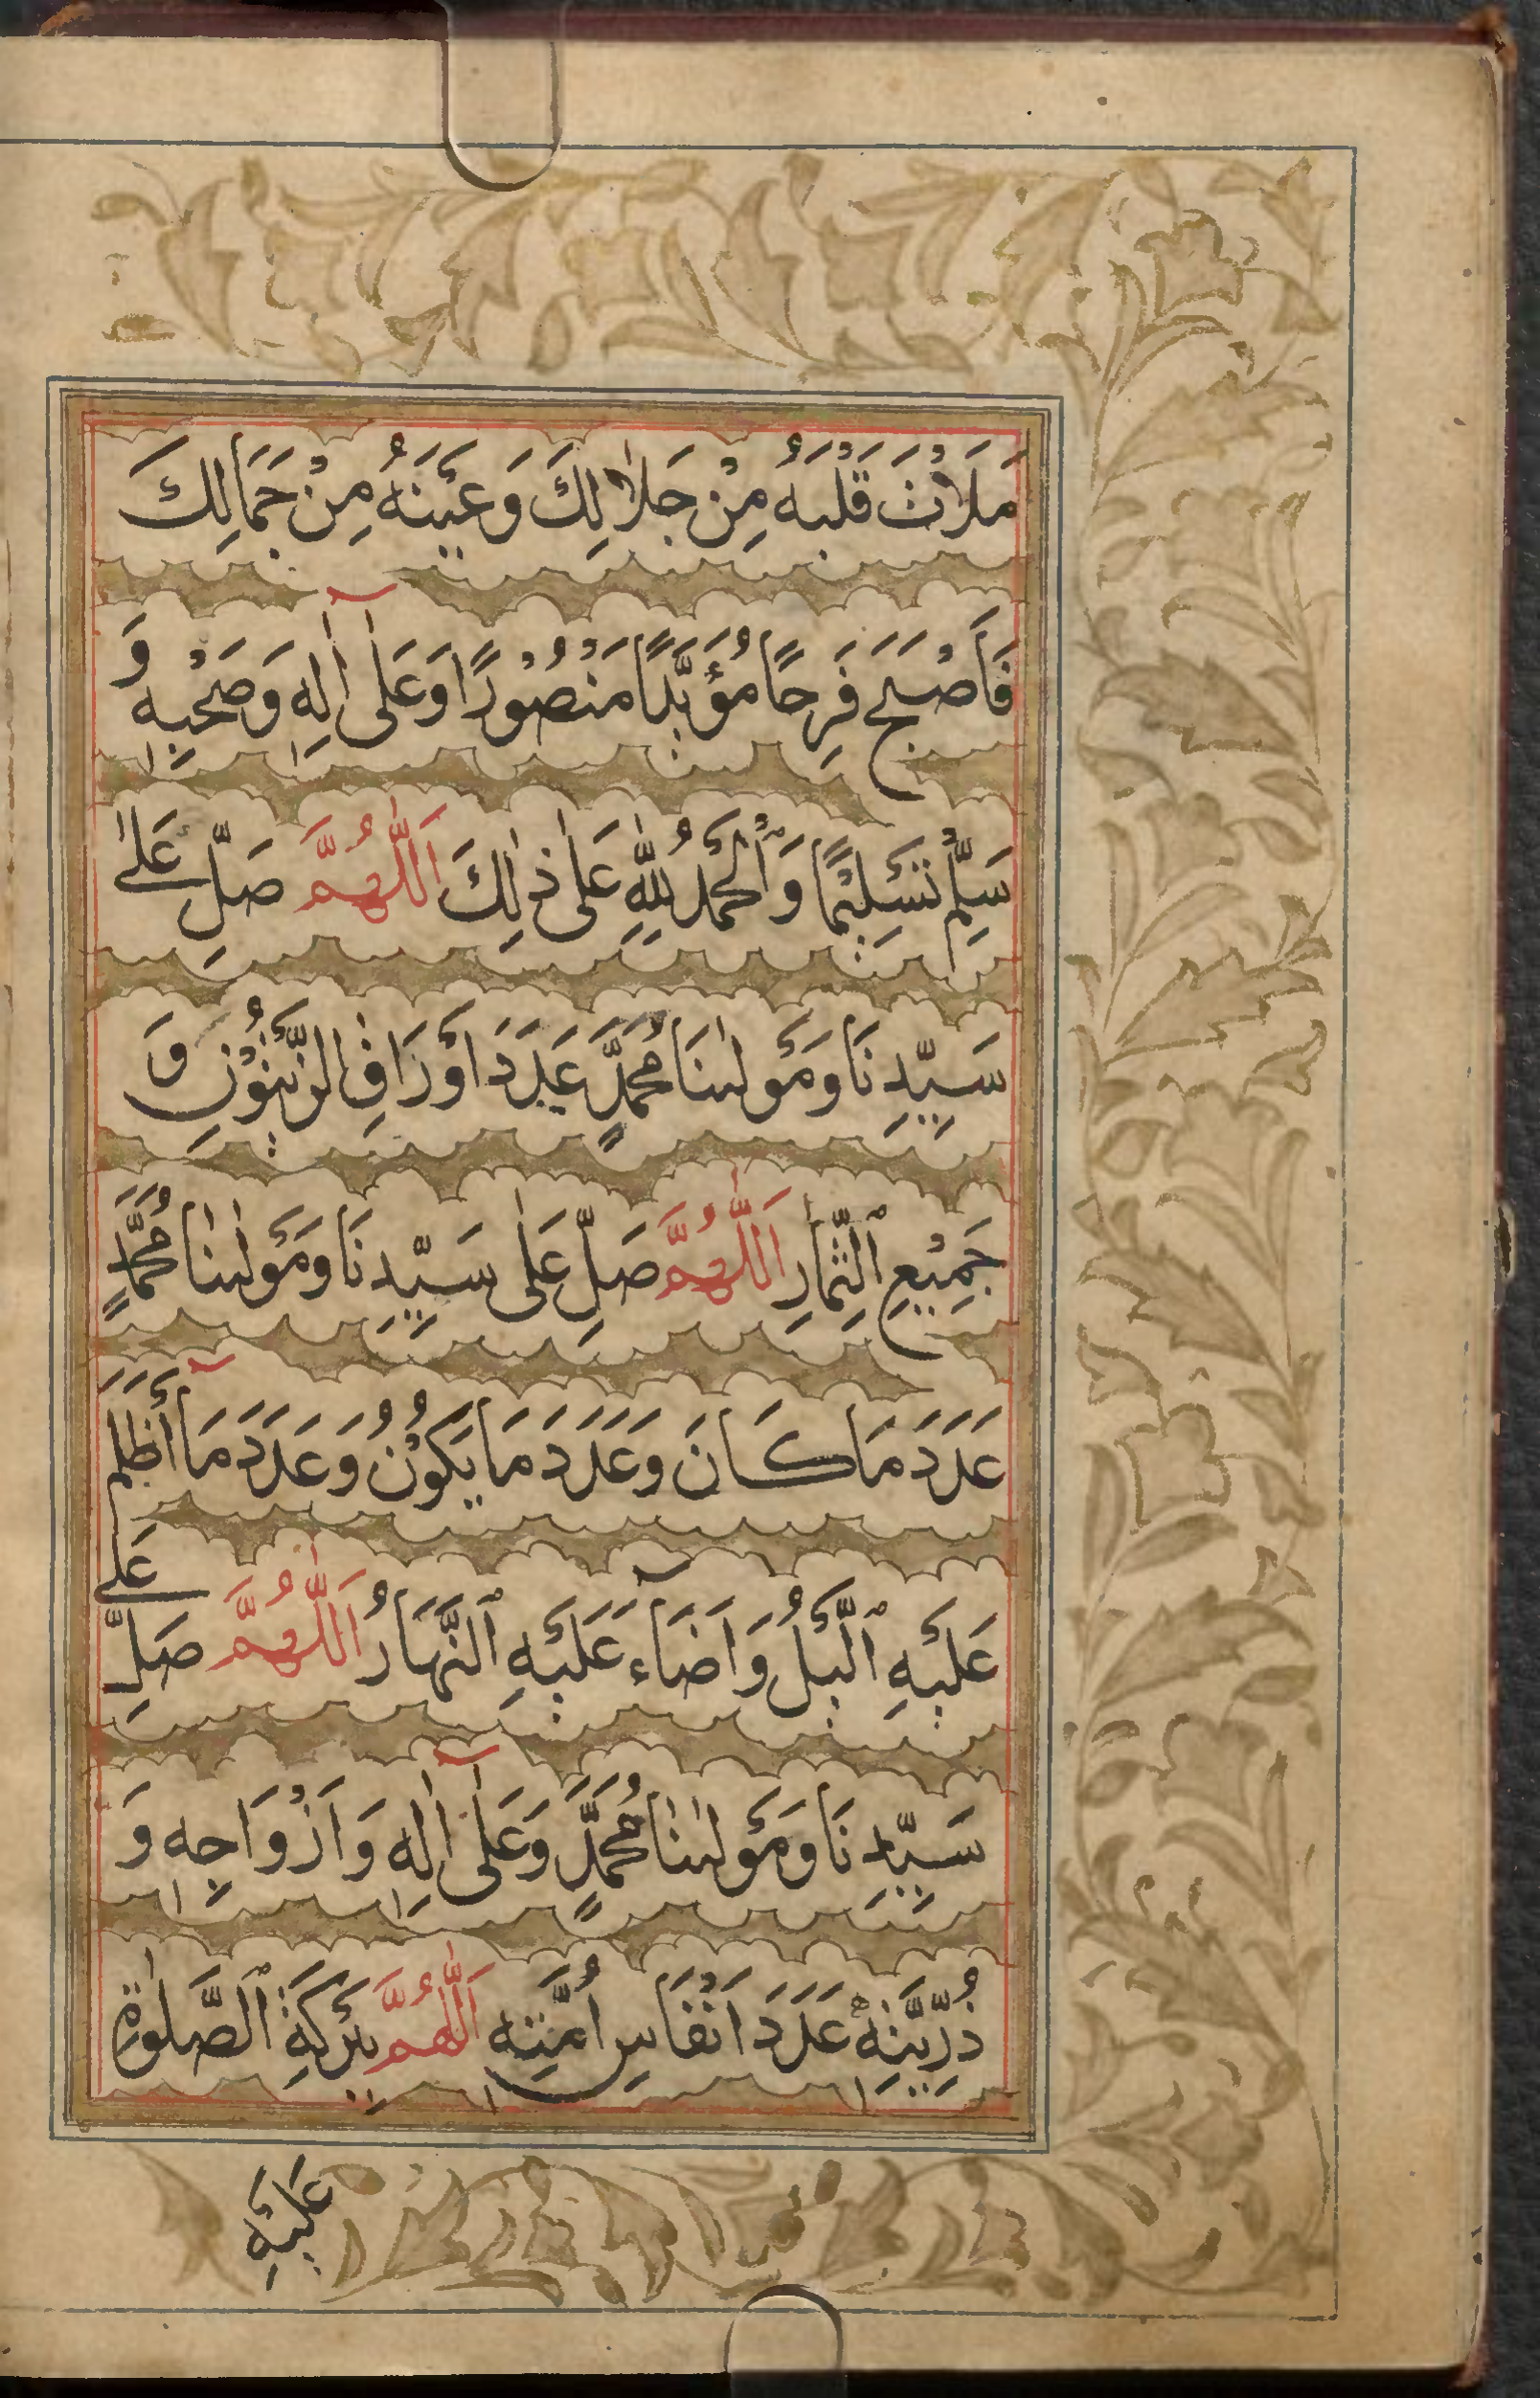 مَلَاْتَ قَلْبَهُ مِنْ جَلَالِكَ وَعَيْنَهُ مِنْ جَمَالِكَ
فَاَصْبَحَ فَرِحًا مُؤَيَّدًا مَنْصُوْرًا وَعَلٰى اٰلِهٖ وَصَحْبِهٖ وَ
سَلِّمْ تَسْلِيْمًا وَالْحَمْدُ لِلّٰهِ عَلٰى ذٰلِكَ اَللّٰهُمَّ صَلِّ عَلٰى
سَيِّدِنَا وَمَوْلٰىنَا مُحَمَّدٍ عَدَدَ اَوْرَاقِ الزَّيْتُوْنِ وَ
جَمِيْعِ الثِّمَارِ اَللّٰهُمَّ صَلِّ عَلٰى سَيِّدِنَا وَمَوْلٰىنَا مُحَمَّدٍ
عَدَدَ مَا كَانَ وَعَدَدَ مَا يَكُوْنُ وَعَدَدَ مَا أَظْلَمَ
عَلَيْهِ الَّيْلُ وَاَضَاءَ عَلَيْهِ النَّهَارُ اَللّٰهُمَّ صَلِّ عَلٰى
سَيِّدِنَا وَمَوْلٰىنَا مُحَمَّدٍ وَعَلٰى اٰلِهٖ وَاَزْوَاجِهٖ وَ
ذُرِّيَّتِهٖ عَدَدَ اَنْفَاسِ اُمَّتِهٖ اَللّٰهُمَّ بِبَرَكَةِ الصَّلٰوةِ
عَلَيْهِ